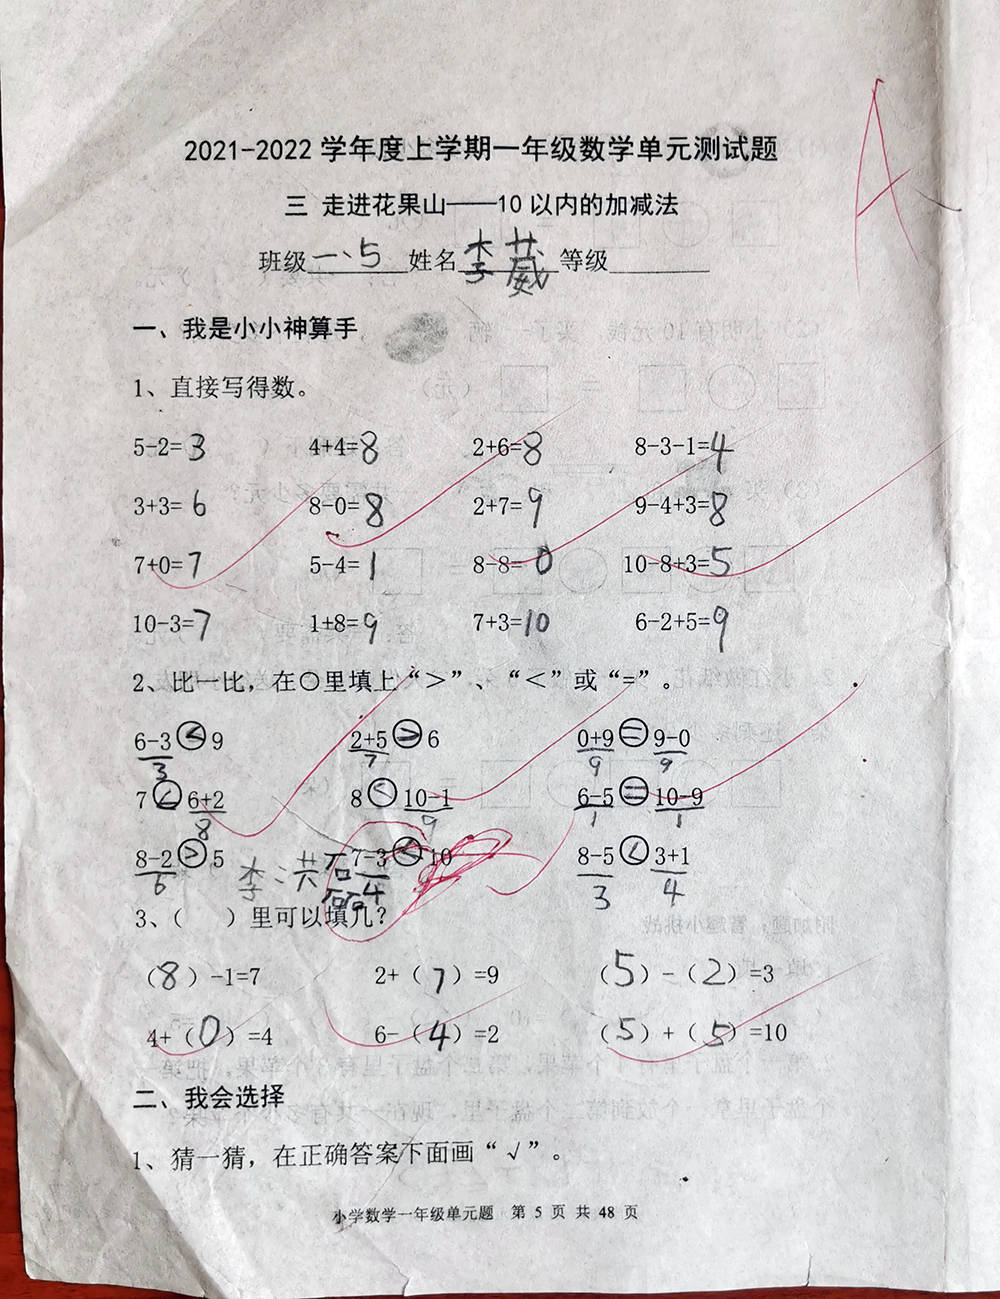 2021-2022 学年度上学期一年级数学单元测试题
三 走进花果山——10 以内的加减法
班级一、5 姓名李 等级
一、我是小小神算手
1、直接写得数。
5-2=3 4+4=8 2+6=8 8-3-1=4
3+3=6 8-0=8 2+7=9 9-4+3=8
7+0=7 5-4=1 8-8=0 10-8+3=5
10-3=7 1+8=9 7+3=10 6-2+5=9
2、比一比，在○里填上“＞”、“＜”或“=”。
6-3<9 2+5>6 0+9=9-0
3 7 9 9
7<6+2 8<10-1 6-5=10-9
8 9 1 1
8-2>5 7-3<10 8-5<3+1
6 李 洪磊 4 3 4
3、（ ）里可以填几？
（8）-1=7 2+（7）=9 （5）-（2）=3
4+（0）=4 6-（4）=2 （5）+（5）=10
二、我会选择
1、猜一猜，在正确答案下面画“√”。
小学数学一年级单元题 第 5 页 共 48 页
A